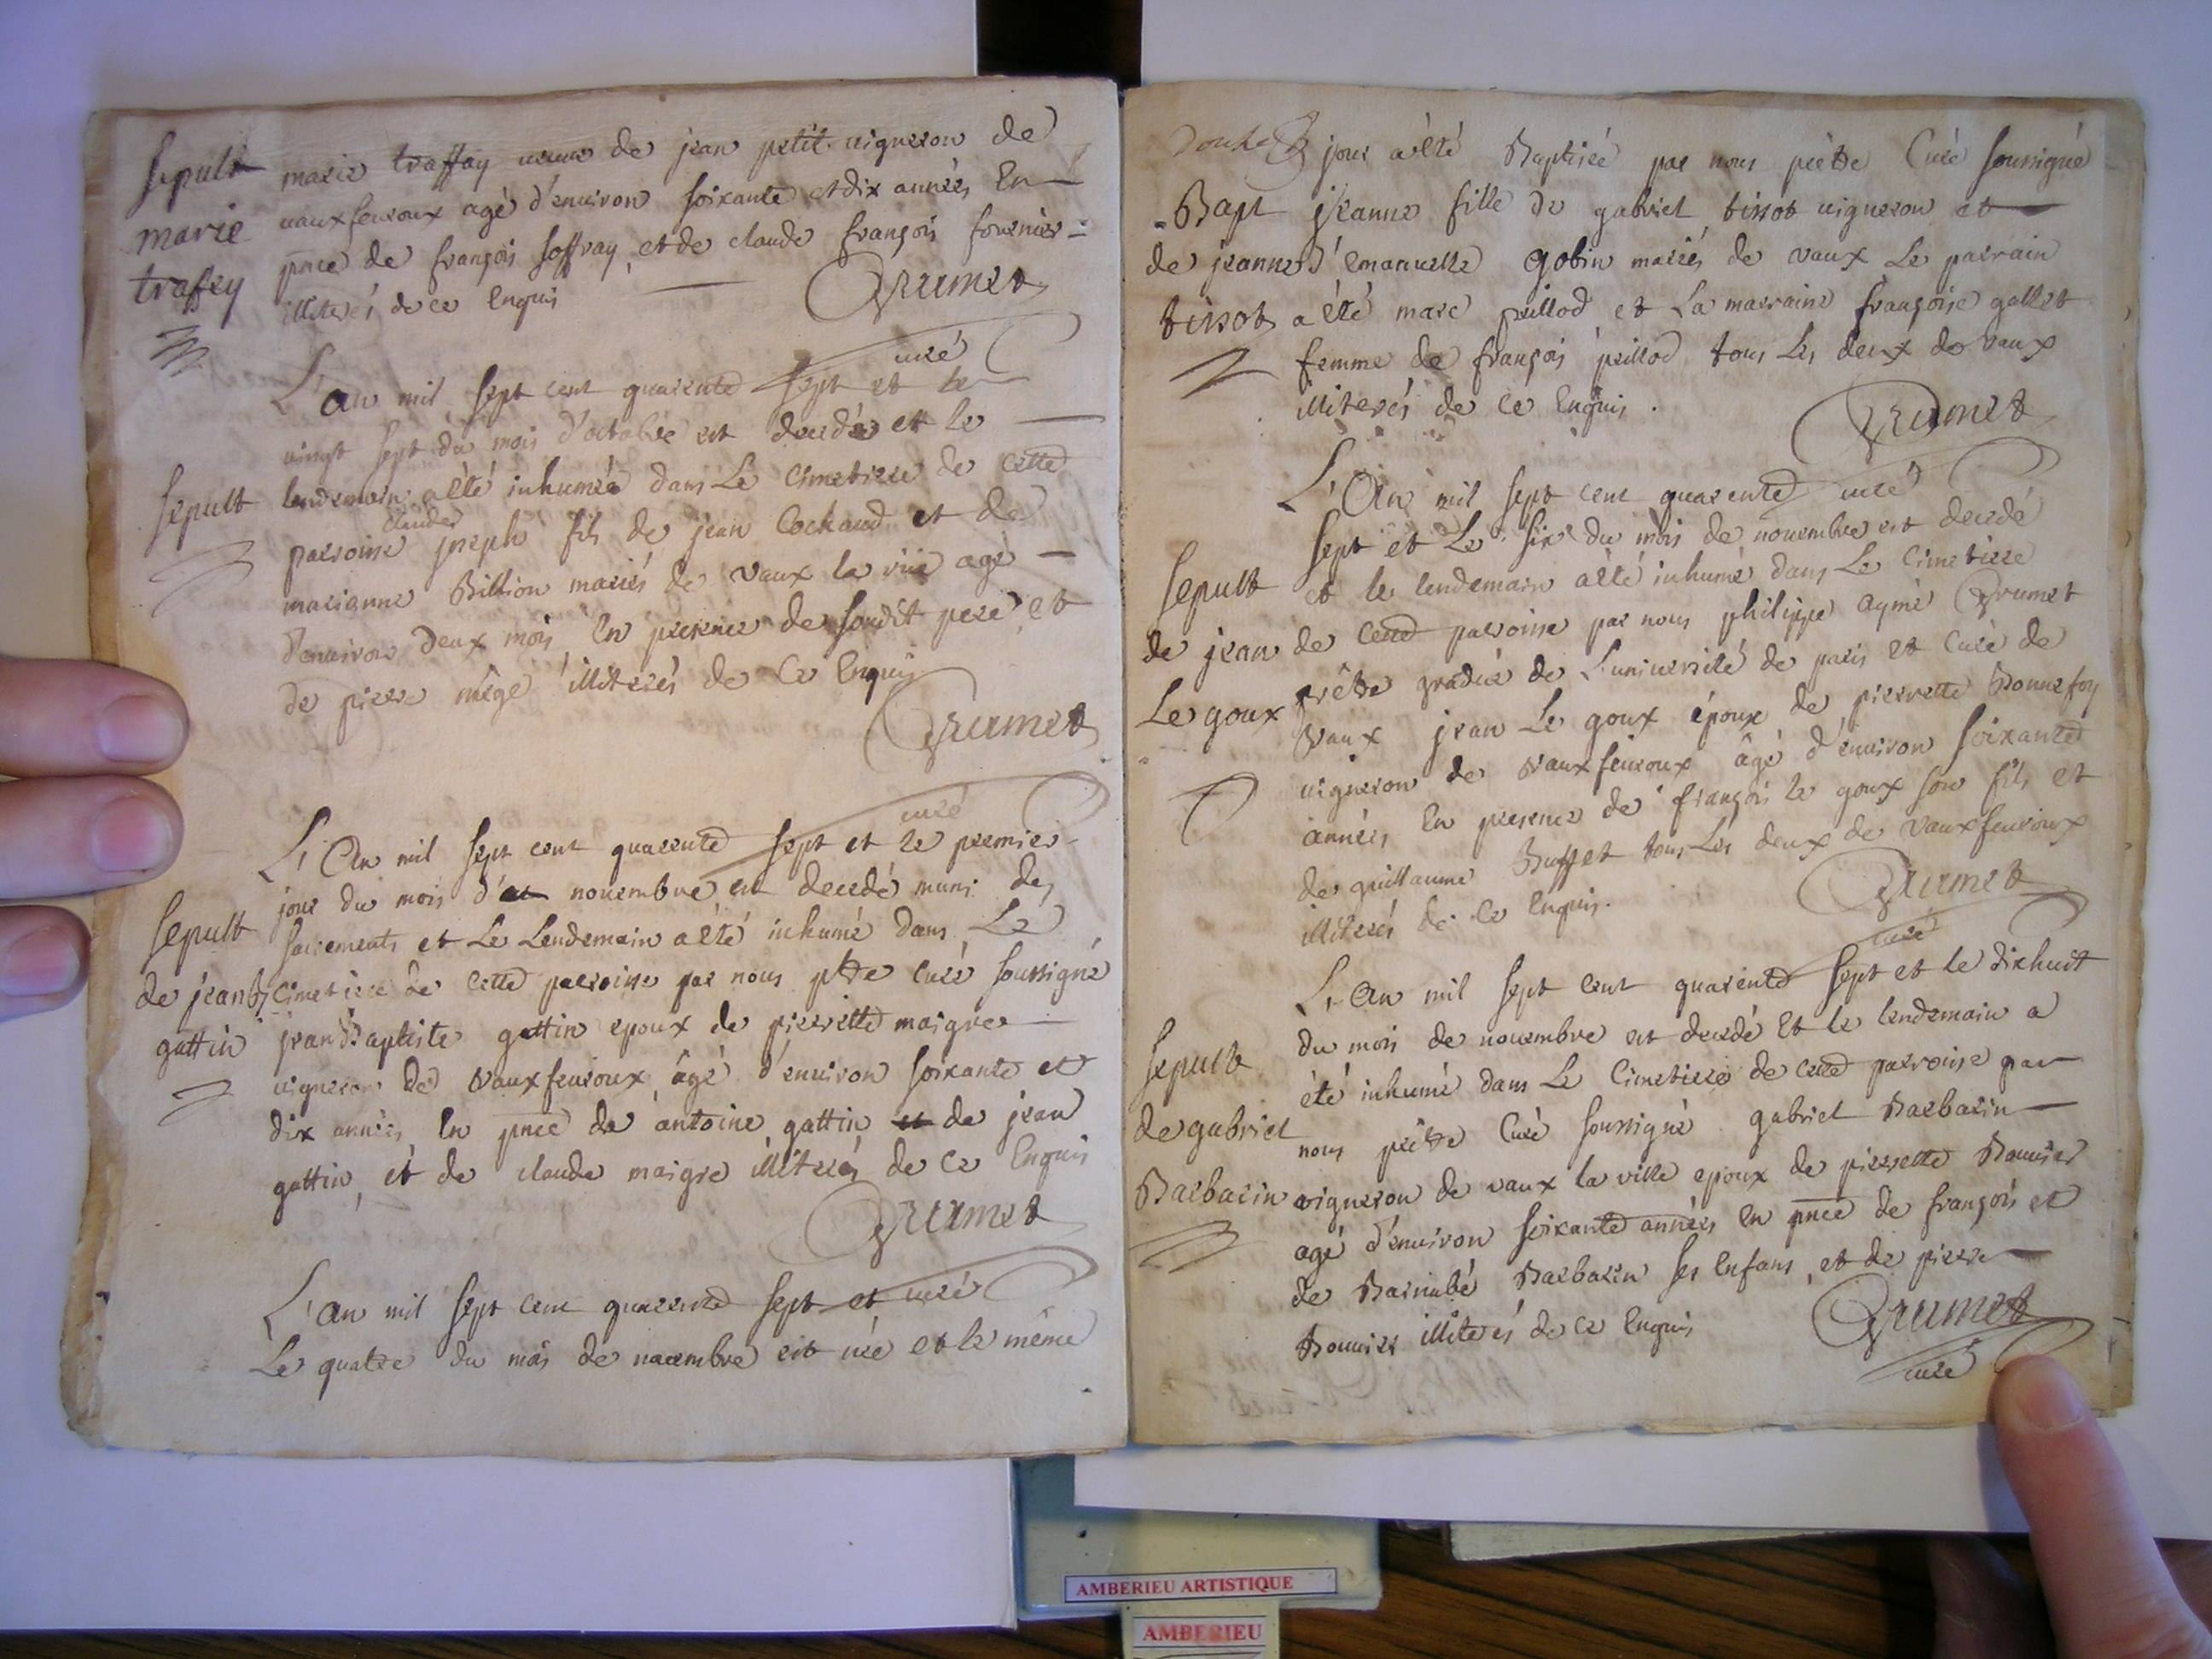 Sepult
marie
trafey
marie traffay veuve de jean petit vigneron de
vauxfevroux agé d'environ soixante et dix années En
pnce de françois soffray, et de claude françois fournier
illiterés de ce Enquis
Brumet
curé
L'an mil sept cent quarente sept et le
vingt sept du mois d'octobre est decedée et le
Sepult
lendemain a été inhumée dans Le Cimetiere de cette
claude
parroisse joseph fils de jean Cochaud et de
marianne Billion mariés de vaux la vile agé
d'environ deux mois, En presence de soudit pere, et
de pierre mége illiterés de Ce Enquis
Brumet
curé
L'An mil sept cent quarente sept et le premier
jour du mois d'et novembre est decedé muni des
Sepult
sacrements et Le Lendemain a été inhumé dans Le
de jean B
Cimetiere de cette parroisse par nous ptre Curé soussigné
gattin
jean Baptiste gattin epoux de pierrette maigre
vigneron de vauxfevroux âgé d'environ soixante et
dix années, En pnce de antoine gattin et de jean
gattin, et de claude maigre illiterés de Ce Enquis
Brumet
curé
L'an mil sept cent quarente sept et
Le quatre du mois de novembre est née et le même
jour a été Baptisée par nous prêtre Curé soussigné
Bapt
de jeanne
tissot
jeanne fille de gabriel tissot vigneron et
d'emanuelle gobin mariés de vaux Le parrain
a été marc peillod et La marraine françoise gallet
femme de françois peillod tous Les deux de vaux
illiterés de Ce Enquis.
Brumet
curé
L'An mil sept cent quarente
sept et Le six du mois de novembre est decedé
Sepult
de jean
Le goux
et le lendemain a été inhumé dans Le Cimetiere
de cette parroisse par nous philippe aymé Brumet
prêtre gradué de L'université de paris et Curé de
vaux jean Le goux époux de pierrette Bonnefoy
vigneron de vauxfevroux âgé d'environ soixante
années En presence de françois le goux son fils et
de guillaume Buffet tous Les deux de vauxfevroux
illiterés de Ce Enquis.
Brumet
curé
L'An mil sept cent quarente sept et le dixhuit
du mois de novembre est decedé Et le lendemain a
Sepult
de gabriel
Barbarin
été inhumé dans Le Cimetiere de cette parroise par
nous prêtre Curé soussigné gabriel Barbarin
vigneron de vaux la ville epoux de pierrette Bouvier
agé d'environ soixante années En pnce de françois et
de Barnabé Barbarin ses Enfans, et de pierre
Bouvier illiterés de ce Enquis
Brumet
curé
AMBERIEU ARTISTIQUE
AMBERIEU